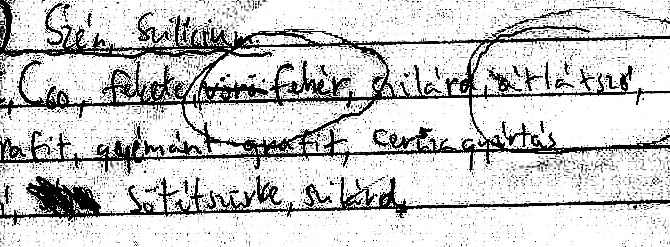 Szén, Szilícium
, C60, fekete, fehér, szilárd, átlátszó,
rafit, gyémánt grafit, ceruzagyártás
sötétszürke, szilárd,